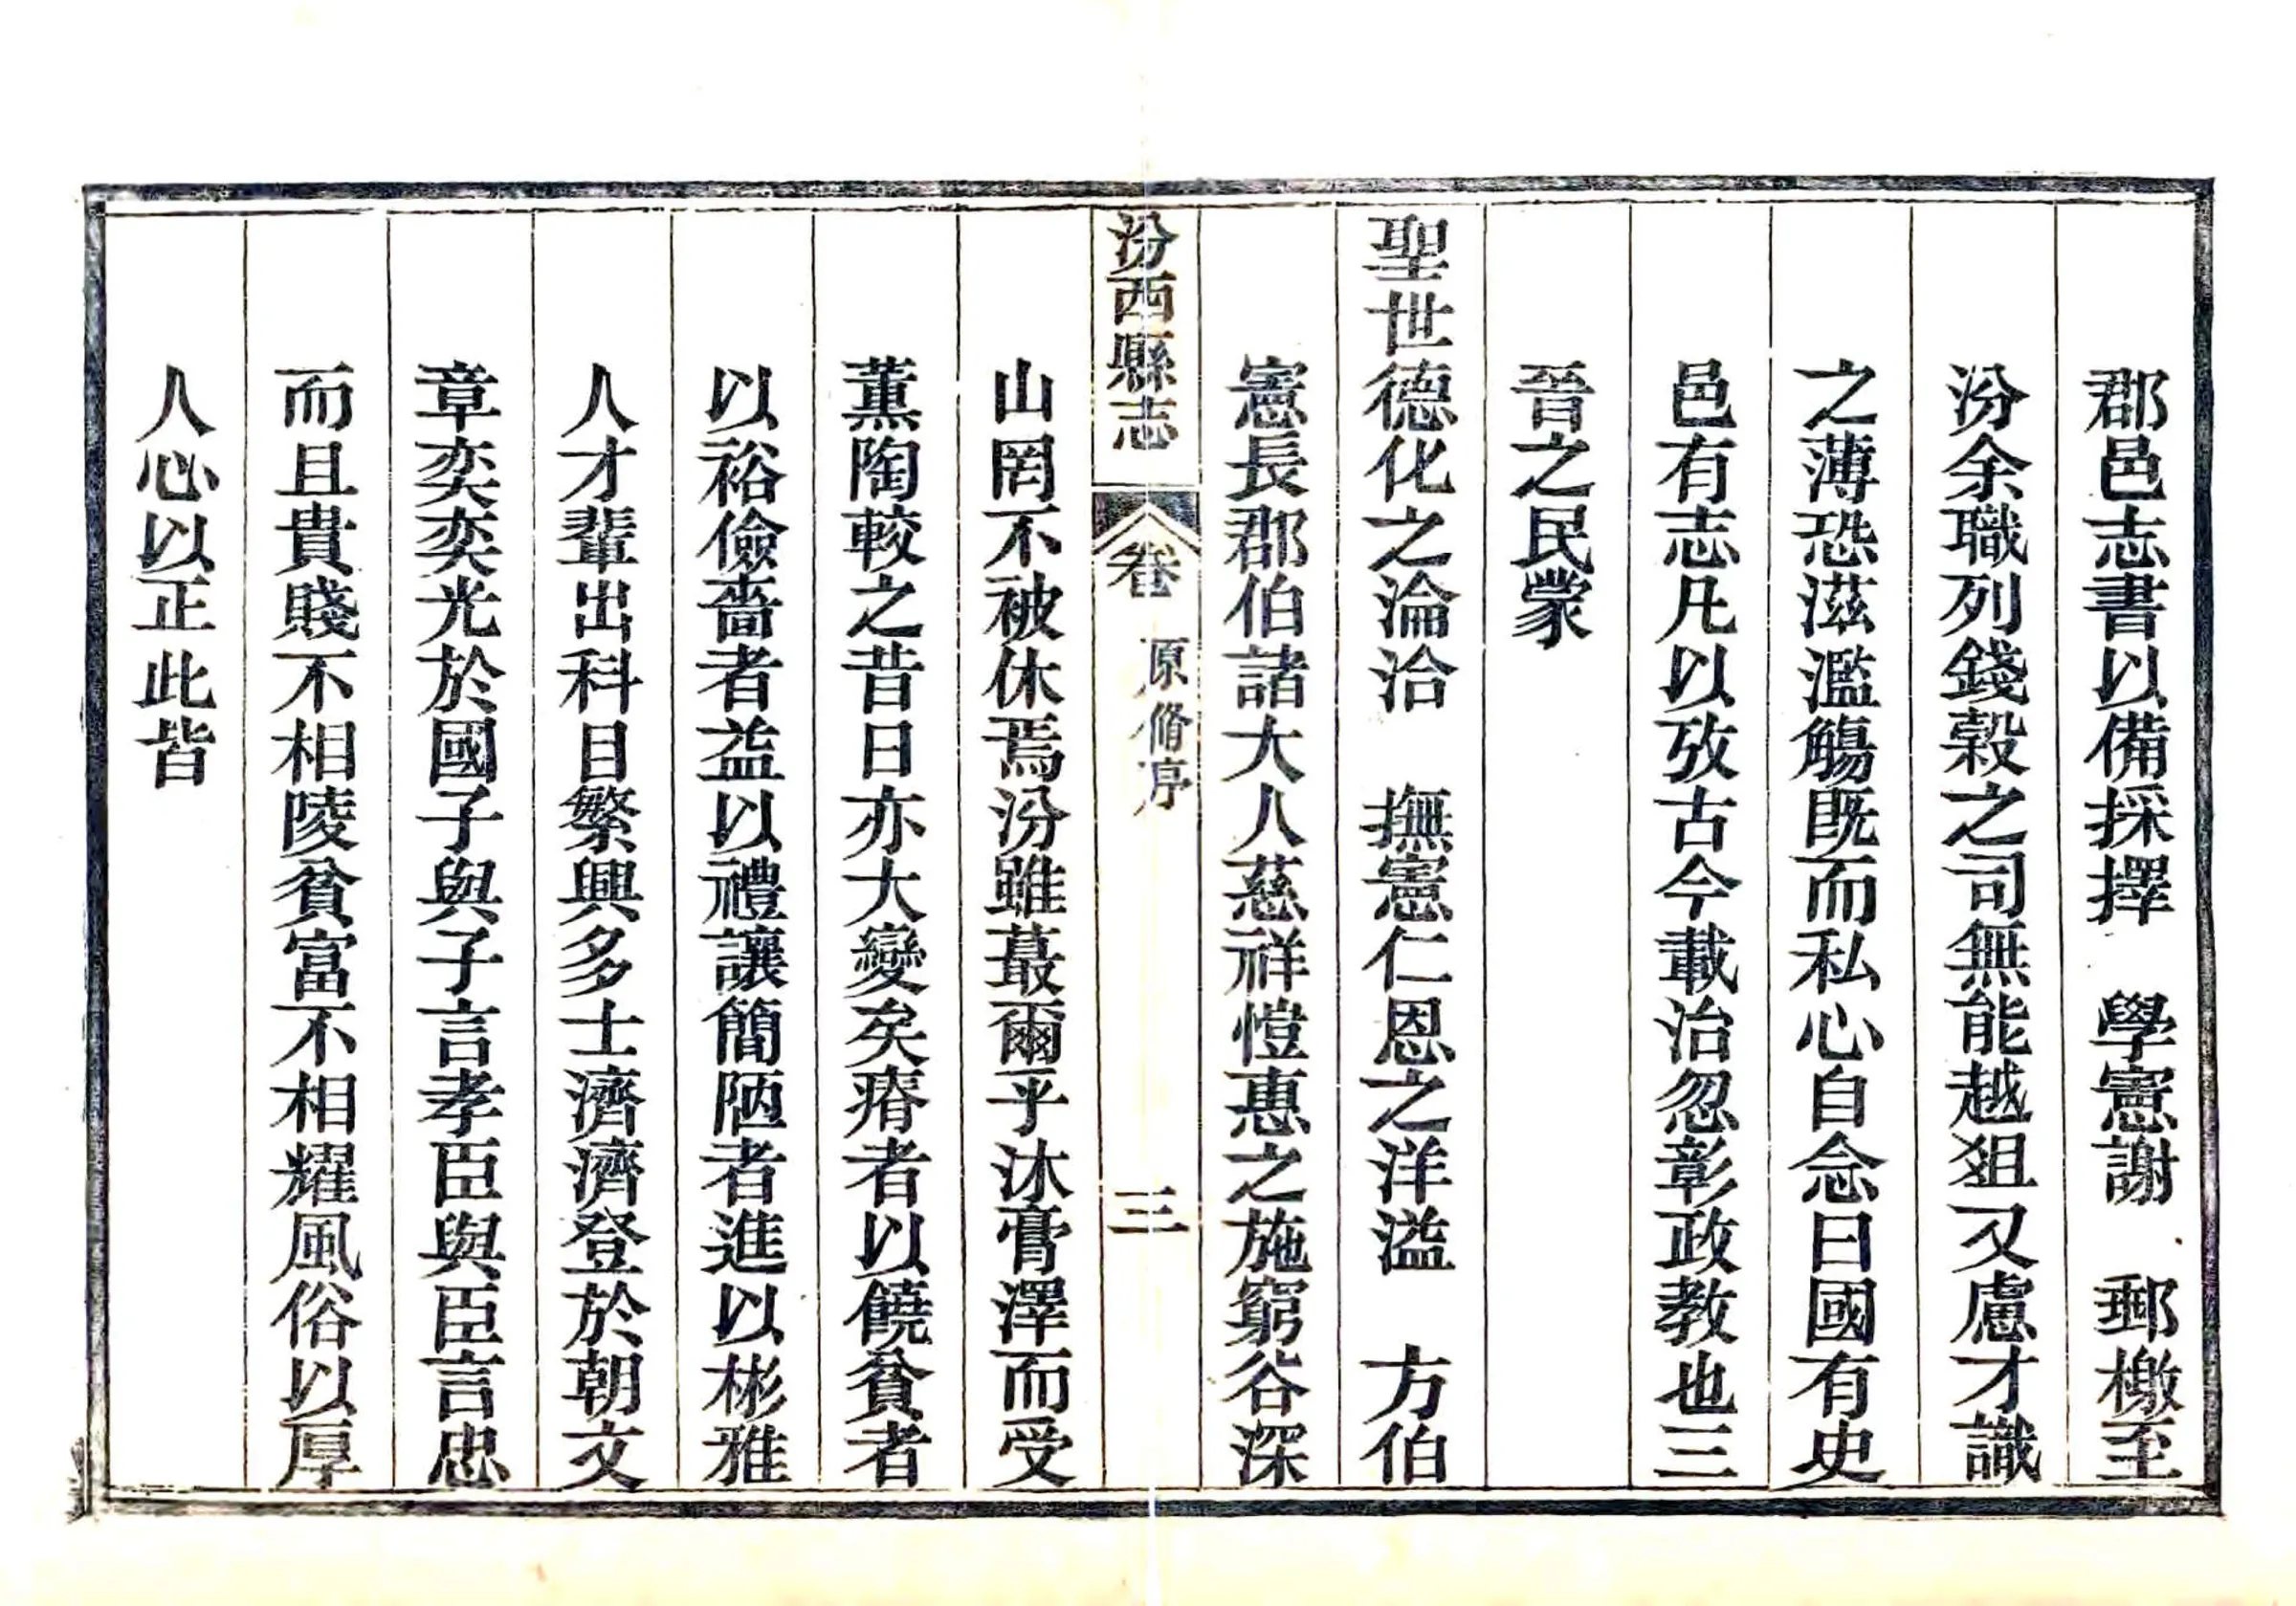 郡邑志書以備採擇　學憲謝　郵檄至
汾余職列錢穀之司無能越狙又慮才識
之薄恐滋濫觴既而私心自念曰國有史
邑有志凡以攷古今載治忽彰政教也三
晉之民蒙
聖世德化之淪洽　撫憲仁恩之洋溢　方伯
憲長郡伯諸大人慈祥愷惠之施窮谷深
汾西縣志　卷　原脩序　三
山罔不被休焉汾雖蕞爾乎沐膏澤而受
薰陶較之昔日亦大變矣瘠者以饒貧者
以裕儉嗇者益以禮讓簡陋者進以彬雅
人才輩出科目繁興多士濟濟登於朝文
章奕奕光於國子與子言孝臣與臣言忠
而且貴賤不相陵貧富不相耀風俗以厚
人心以正此皆